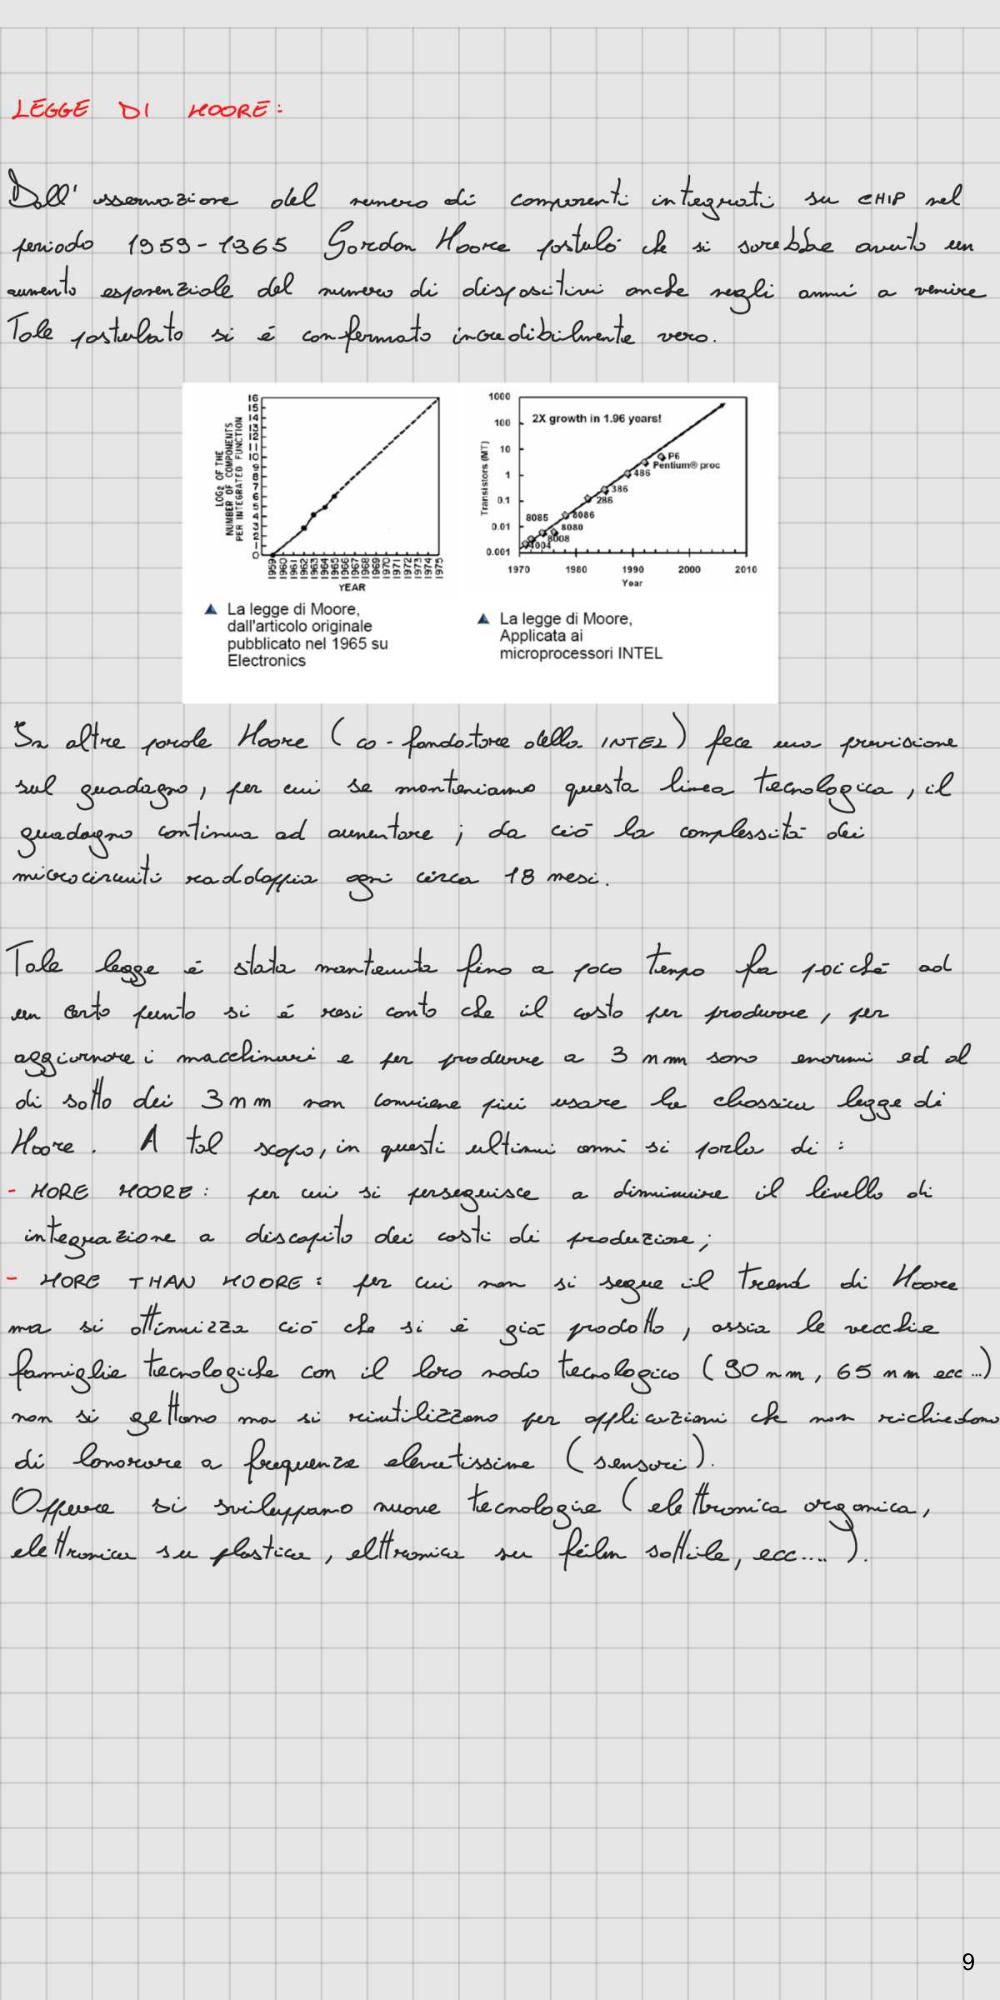 LEGGE DI MOORE:
Dall'osservazione del numero di componenti integrati su CHIP nel
periodo 1959-1965 Gordon Moore postuló che si sarebbe avuto un
aumento esponenziale del numero di dispositivi anche negli anni a venire
Tale postulato si é confermato incredibilmente vero.
LOG2 OF THE
NUMBER OF COMPONENTS
PER INTEGRATED FUNCTION
16
15
14
13
12
11
10
9
8
7
6
5
4
3
2
1
0
1959 1960 1961 1962 1963 1964 1965 1966 1967 1968 1969 1970 1971 1972 1973 1974 1975
YEAR
La legge di Moore,
dall'articolo originale
pubblicato nel 1965 su
Electronics
Transistors (MT)
1000
100
10
1
0.1
0.01
0.001
2X growth in 1.96 years!
P6
Pentium® proc
486
386
286
8086
8085
8080
8008
4004
1970 1980 1990 2000 2010
Year
La legge di Moore,
Applicata ai
microprocessori INTEL
In altre parole Moore (co-fondatore della INTEL) fece una previsione
sul guadagno, per cui se manteniamo questa linea tecnologica, il
guadagno continua ad aumentare; da ció la complessitá dei
microcircuiti raddoppia ogni circa 18 mesi.
Tale legge é stata mantenuta fino a poco tempo fa poiché ad
un certo punto si é resi conto che il costo per produrre, per
aggiornare i macchinari e per produrre a 3 nm sono enormi ed al
di sotto dei 3nm non conviene piú usare la classica legge di
Moore. A tal scopo, in questi ultimi anni si parla di:
- MORE MOORE: per cui si perseguisce a diminuire il livello di
integrazione a discapito dei costi di produzione;
- MORE THAN MOORE: per cui non si segue il trend di Moore
ma si ottimizza ció che si é giá prodotto, ossia le vecchie
famiglie tecnologiche con il loro nodo tecnologico (90 nm, 65 nm ecc...)
non si gettano ma si riutilizzano per applicazioni che non richiedono
di lavorare a frequenze elevatissime (sensori).
Oppure si sviluppano nuove tecnologie (elettronica organica,
elettronica su plastica, elttronica su film sottile, ecc....).
9